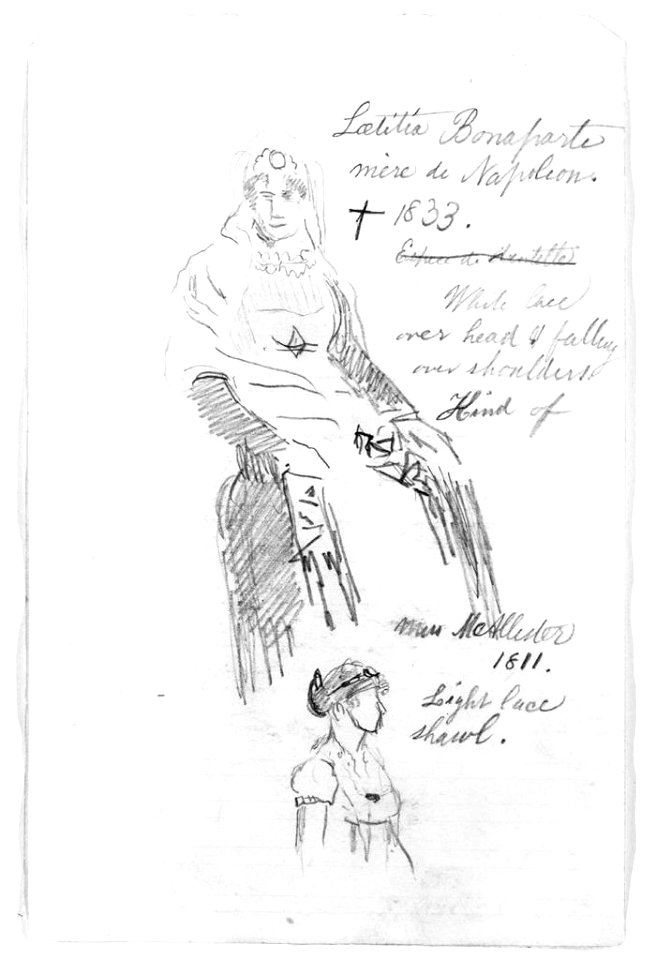 Lætitia Bonaparte
mère de Napoleon.
† 1833.
Espece de Mantille
White lace
over head & falling
over shoulders.
Kind of
Miss McAllister
1811.
Light lace
shawl.